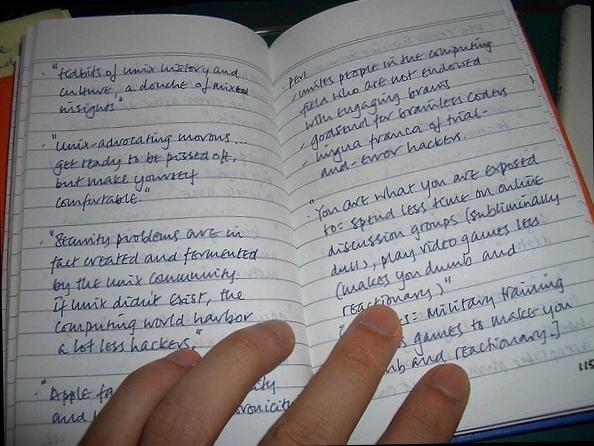 "tidbits of unix history and
culture, a douche of mixed
insights"
"Unix-advocating morons...
get ready to be pissed off,
but make yourself
comfortable."
"Security problems are in
fact created and fermented
by the unix community
If unix didn't exist, the
computing world harbor
a lot less hackers."
"Apple
and
Perl
unites people in the computing
field who are not endowed
with engaging brains
godsend for brainless coders
lingua franca of trial-
and-error hackers.
"You are what you are exposed
to: spend less time on online
discussion groups (subliminally
dull), play video games less
(makes you dumb and
reactionary)"
: military training
games to make you
and reactionary.]
115